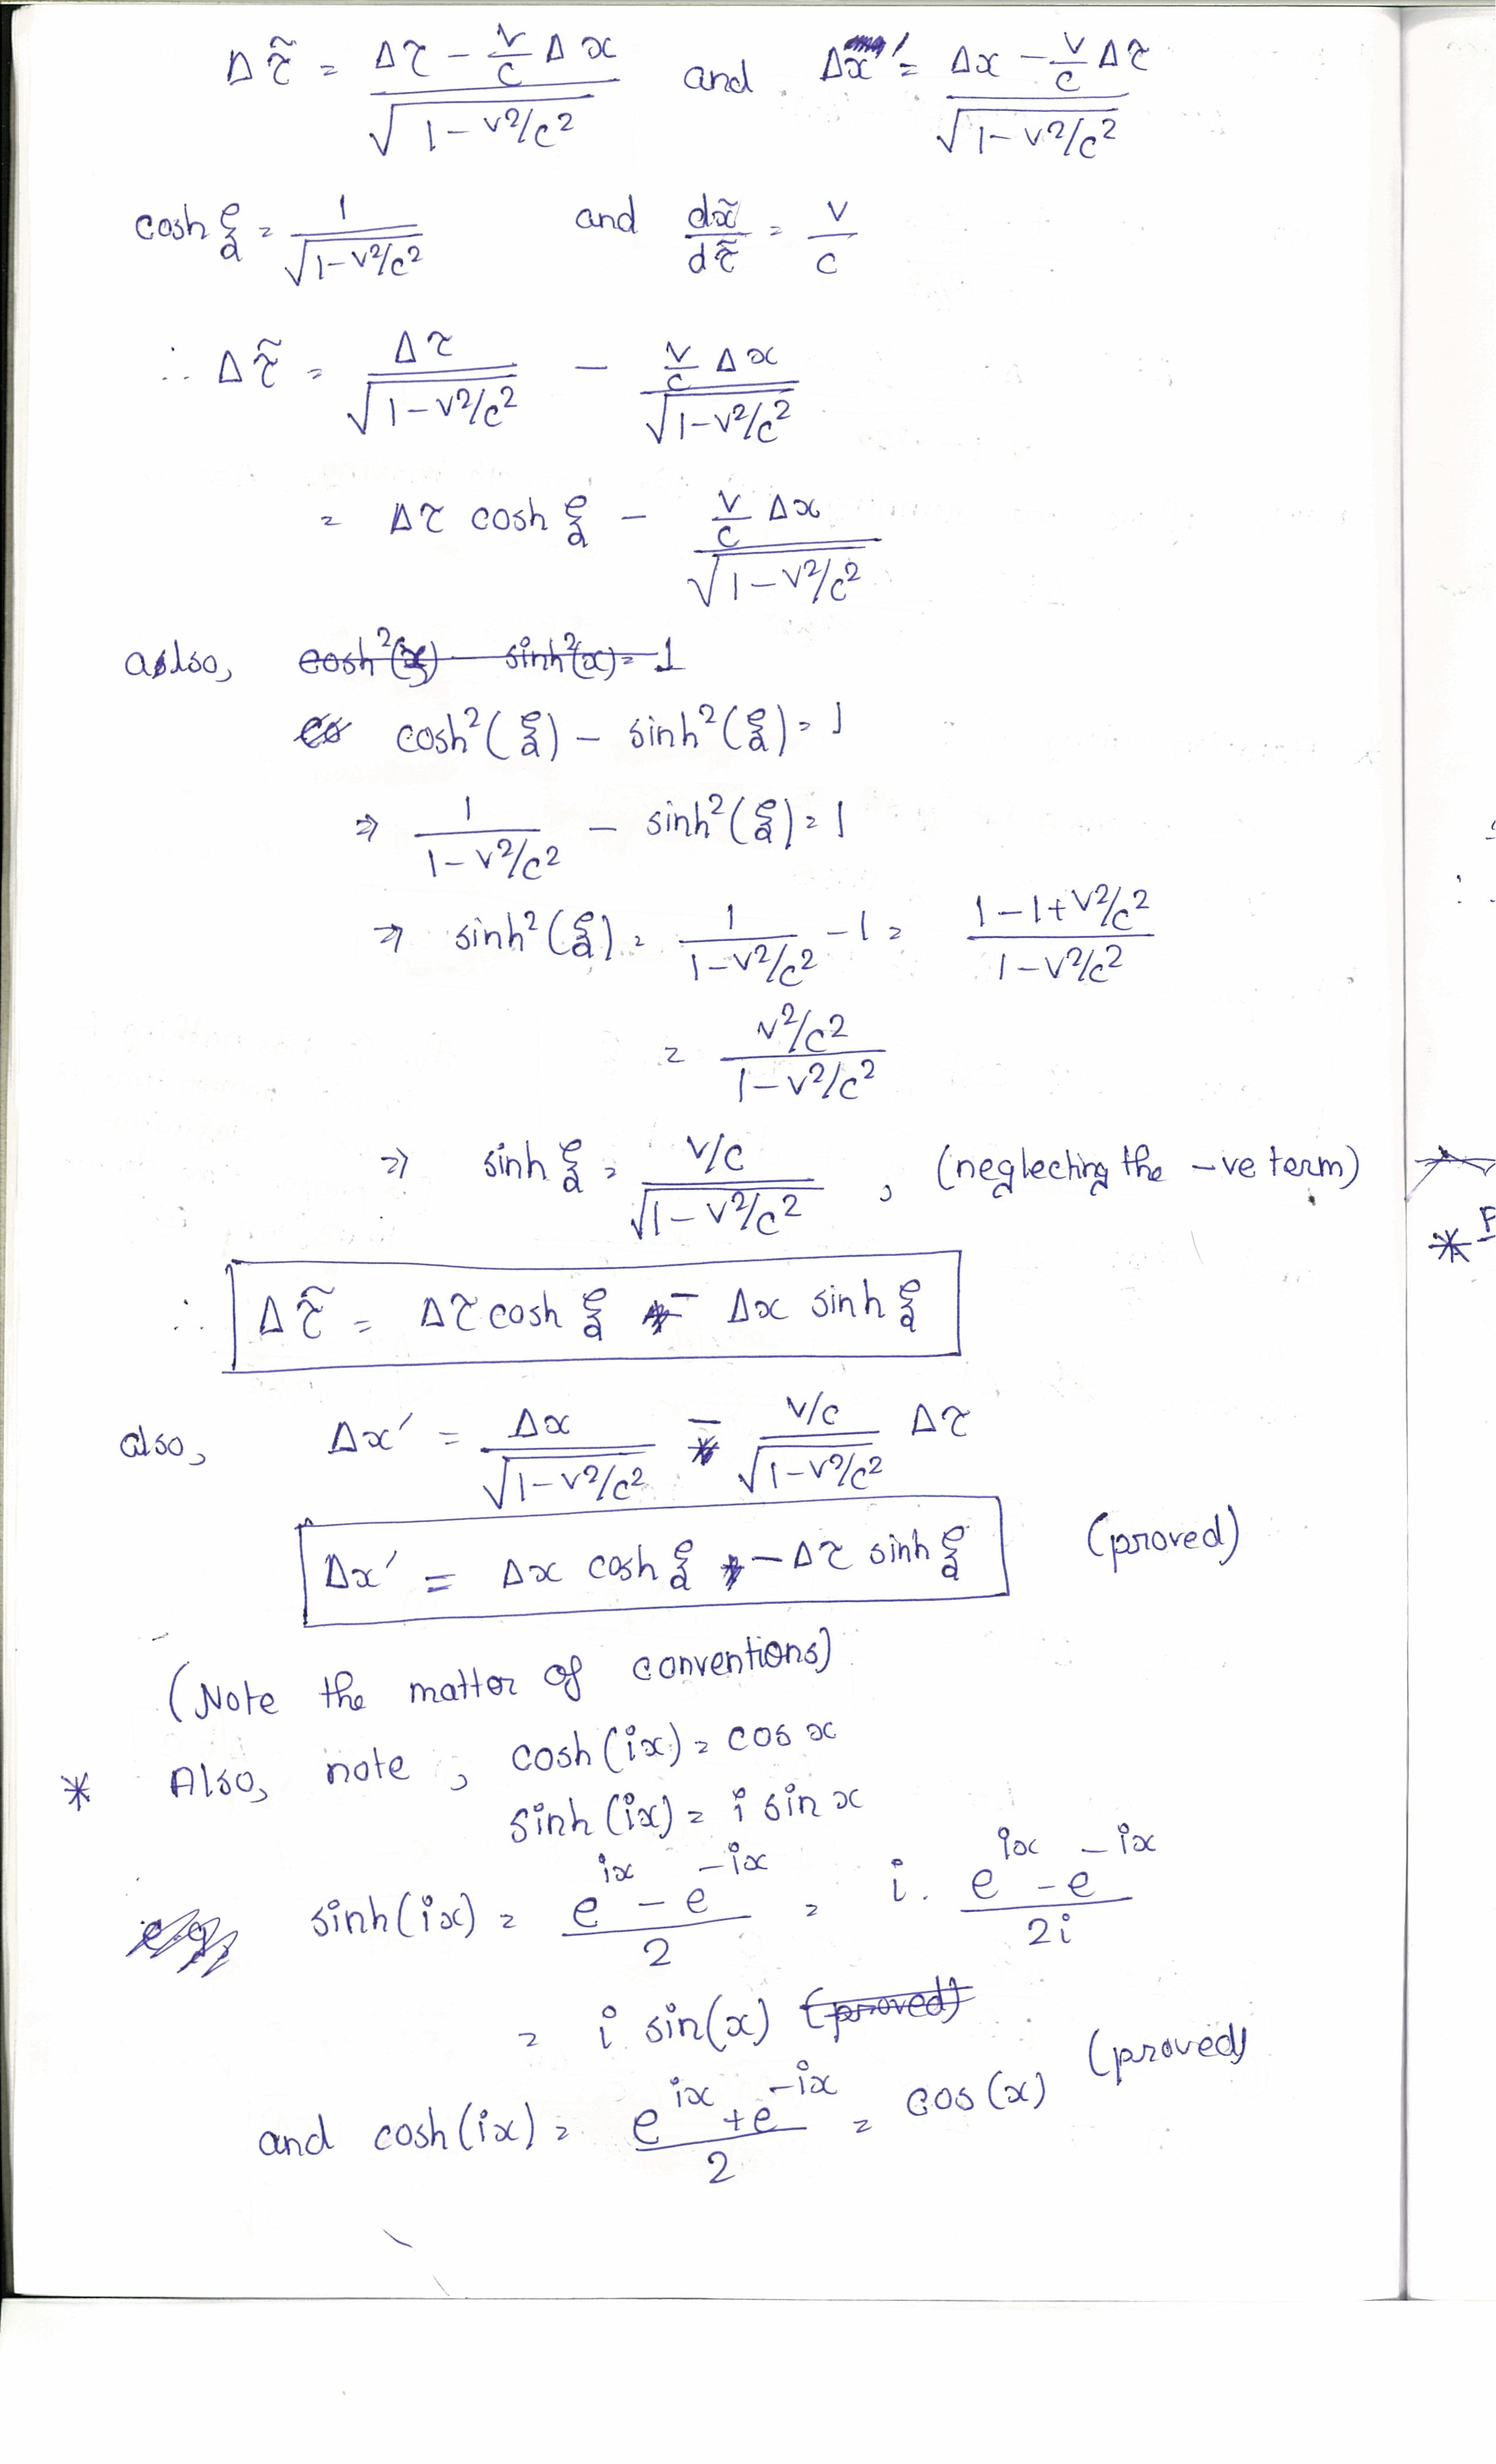 Δτ̃ = (Δτ - v/c Δx) / √(1 - v²/c²) and Δx' = (Δx - v/c Δτ) / √(1 - v²/c²)
cosh ξ = 1 / √(1 - v²/c²) and dx̃/dτ̃ = v/c
∴ Δτ̃ = Δτ / √(1 - v²/c²) - (v/c Δx) / √(1 - v²/c²)
= Δτ cosh ξ - (v/c Δx) / √(1 - v²/c²)
also, cosh²(x) - sinh²(x) = 1
co cosh²(ξ) - sinh²(ξ) = 1
⇒ 1 / (1 - v²/c²) - sinh²(ξ) = 1
⇒ sinh²(ξ) = 1 / (1 - v²/c²) - 1 = (1 - 1 + v²/c²) / (1 - v²/c²)
= (v²/c²) / (1 - v²/c²)
⇒ sinh ξ = (v/c) / √(1 - v²/c²) , (neglecting the -ve term)
∴ Δτ̃ = Δτ cosh ξ - Δx sinh ξ
also, Δx' = Δx / √(1 - v²/c²) - (v/c) / √(1 - v²/c²) Δτ
Δx' = Δx cosh ξ - Δτ sinh ξ (proved)
(Note the matter of conventions)
* Also, note, cosh(ix) = cos x
sinh(ix) = i sin x
e.g, sinh(ix) = (e^ix - e^-ix) / 2 = i. (e^ix - e^-ix) / 2i
= i sin(x) (proved)
and cosh(ix) = (e^ix + e^-ix) / 2 = cos(x) (proved)